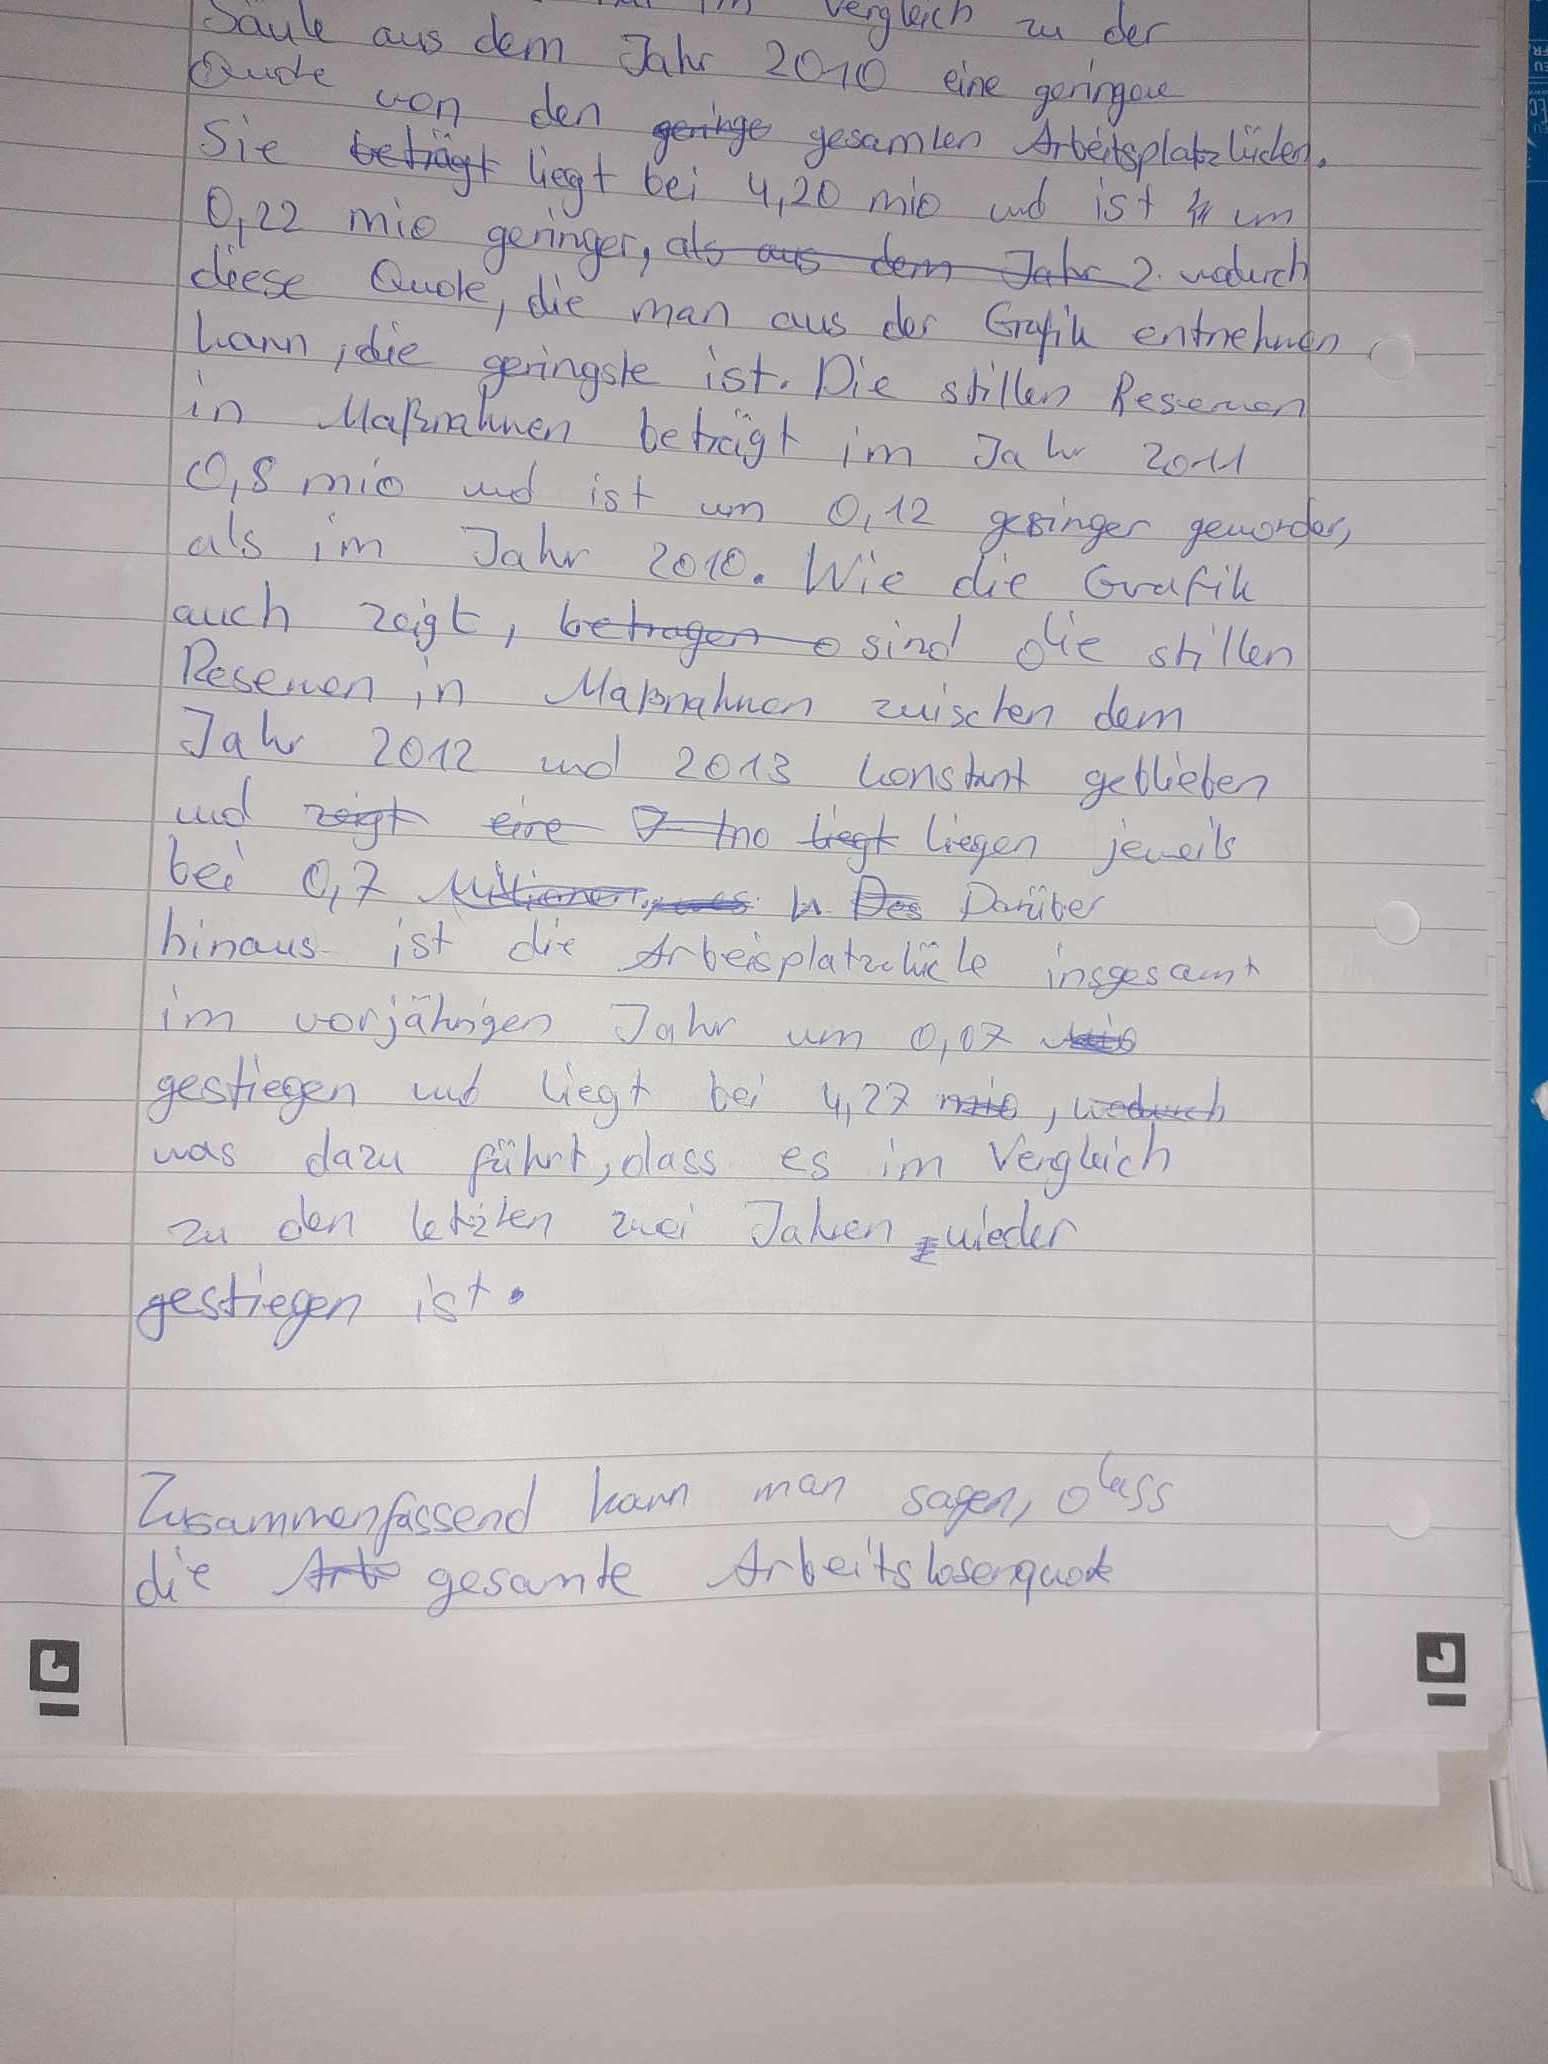 im Vergleich zu der
Säule aus dem Jahr 2010 eine geringere
Quote von den geringe gesamten Arbeitsplatzlücken.
Sie beträgt liegt bei 4,20 mio und ist um
0,22 mio geringer, als aus dem Jahr 2. wodurch
diese Quote, die man aus der Grafik entnehmen
kann, die geringste ist. Die stillen Reserven
in Maßnahmen beträgt im Jahr 2011
0,8 mio und ist um 0,12 geringer geworden,
als im Jahr 2010. Wie die Grafik
auch zeigt, betragen sind die stillen
Reserven in Maßnahmen zwischen dem
Jahr 2012 und 2013 konstant geblieben
und zeigt eine liegt liegen jeweils
bei 0,7 Millionen. Des Darüber
hinaus ist die Arbeisplatzlücke insgesamt
im vorjährigen Jahr um 0,07 Mio
gestiegen und liegt bei 4,27 mio, wodurch
was dazu führt, dass es im Vergleich
zu den letzten zwei Jahren wieder
gestiegen ist.
Zusammenfassend kann man sagen, dass
die Arb gesamte Arbeitslosenquote